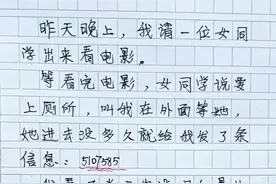 昨天晚上，我请一位女同
学出来看电影。
等看完电影，女同学说要
上厕所，叫我在外面等她，
她进去没多久就给我发了条
信息：5107585